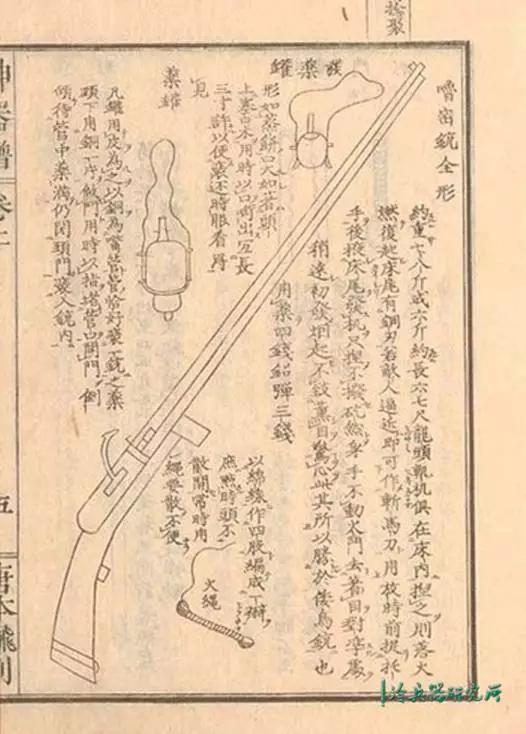 嚕密銃全形
約重七八斤或六斤約長六七尺龍頭軌机俱在床內捏之則落火
燃復起床尾有鋼刃若敵人逼近即可作斬馬刀用放時前捉托
手後掖床尾發机只捏不撥砣然身手不動火門去著目對準處
稍遠初發烟起不致薰目驚心此其所以勝於倭鳥銃也
用藥四錢鉛彈三錢
發藥罐
形如蒸餅口大如
上塞口木用時以口啣出長
三寸許以便時眼看
見
藥罐
凡罐用皮為之以銅為嘴管管恰好裝一銃之藥
頭下用銅一片做門用時以指堵管口開門倒
傾待管中藥滿仍閉頭門裝入銃內
以綿線作四股編成一瓣
庶燃時頭不
散開常時用
繩散不便
火繩
神器譜
五
唐本飜刻
冷兵器研究所